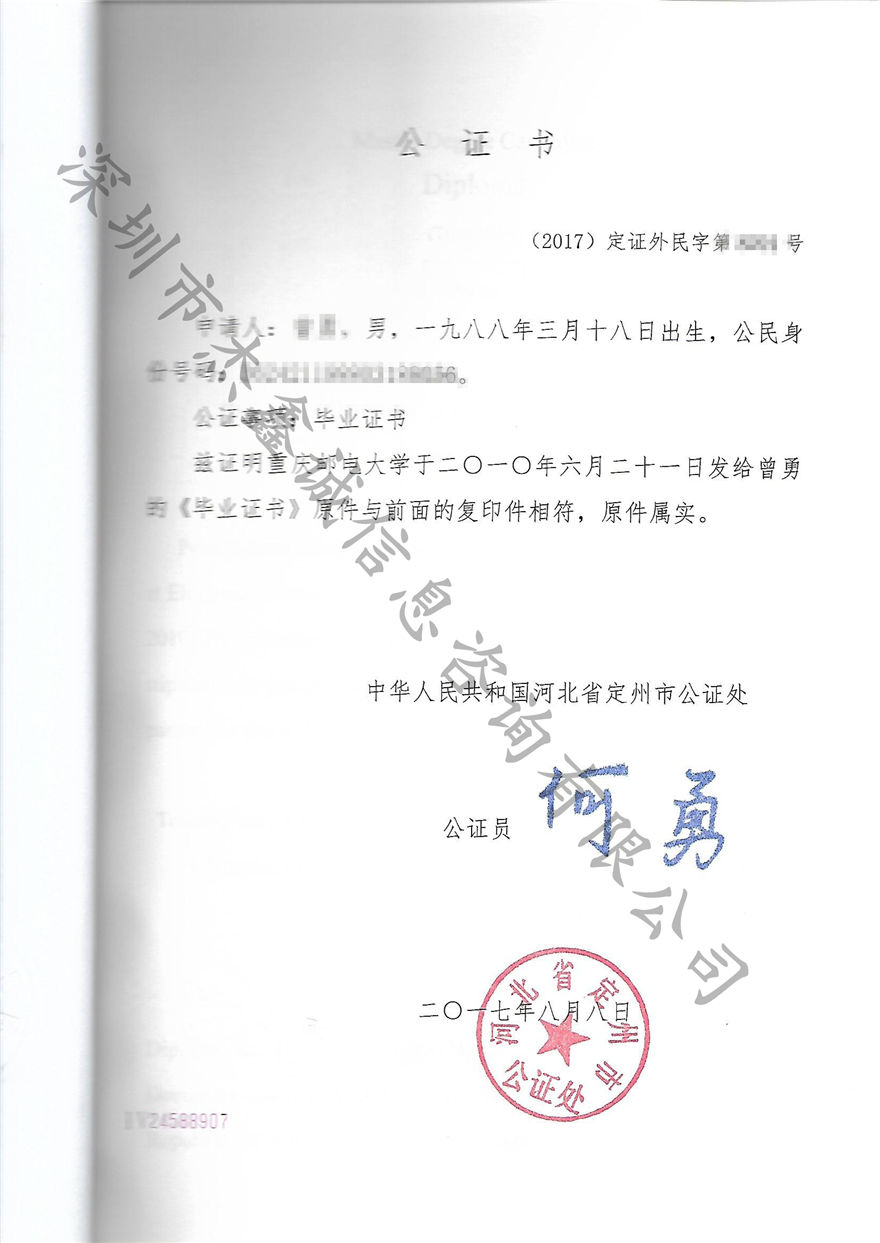 公证书
（2017）定证外民字第 号
申请人： ，男，一九八八年三月十八日出生，公民身
份号码： 。
公证事项：毕业证书
兹证明重庆邮电大学于二〇一〇年六月二十一日发给曾勇
的《毕业证书》原件与前面的复印件相符，原件属实。
中华人民共和国河北省定州市公证处
公证员 何勇
二〇一七年八月八日
河北省定州市
公证处
24588907
深圳市杰鑫诚信息咨询有限公司